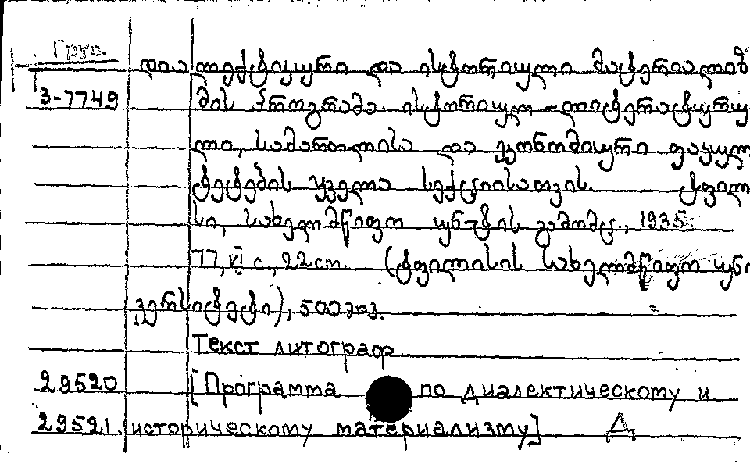 Груз.
დიალექტიკური და ისტორიული მატერიალიზ
3-7749 მის პროგრამა ისტორიულ-ლიტერატურუ
ლი, სამართლისა და ეკონომიური ფაკულ
ტეტების ყველა სექციისათვის. ტფილი
სი, სახელმწიფო უნ-ტის გამომც., 1935.
77, XI с., 22 см. (ტფილისის სახელმწიფო უნი
ვერსიტეტი), 500 ეგზ.
Текст литограф
29520 [Программа по диалектическому и
29521. историческому материализму] Д